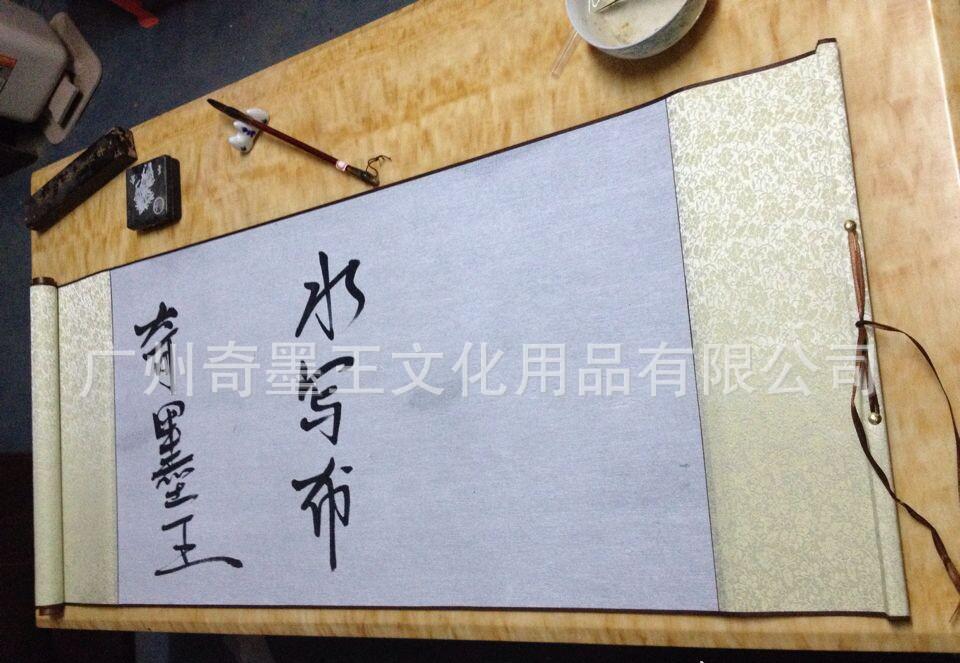 水写布
奇墨王
广州奇墨王文化用品有限公司